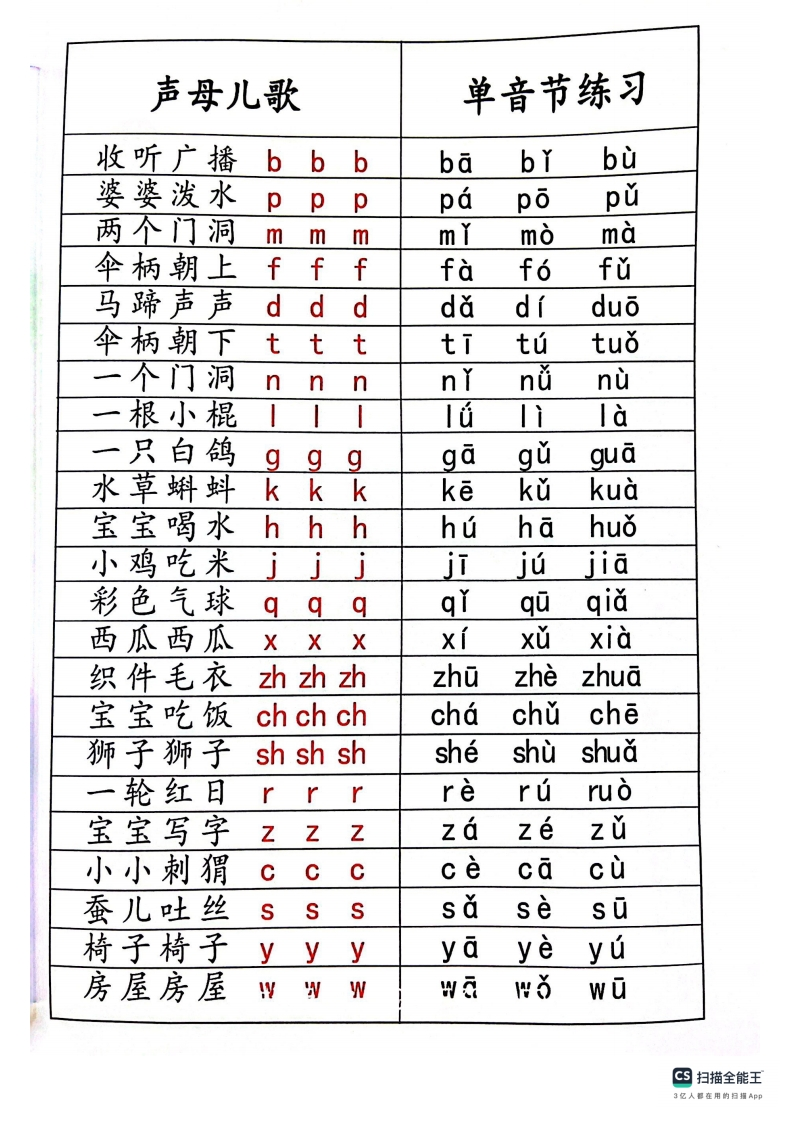 声母儿歌 单音节练习
收听广播 b b b bā bǐ bù
婆婆泼水 p p p pá pō pǔ
两个门洞 m m m mǐ mò mà
伞柄朝上 f f f fà fó fǔ
马蹄声声 d d d dǎ dí duō
伞柄朝下 t t t tī tú tuǒ
一个门洞 n n n nǐ nǚ nù
一根小棍 l l l lǘ lì là
一只白鸽 g g g gā gǔ guā
水草蝌蚪 k k k kē kǔ kuà
宝宝喝水 h h h hú hā huǒ
小鸡吃米 j j j jī jú jiā
彩色气球 q q q qǐ qū qiǎ
西瓜西瓜 x x x xí xǔ xià
织件毛衣 zh zh zh zhū zhè zhuā
宝宝吃饭 ch ch ch chá chǔ chē
狮子狮子 sh sh sh shé shù shuǎ
一轮红日 r r r rè rú ruò
宝宝写字 z z z zá zé zǔ
小小刺猬 c c c cè cā cù
蚕儿吐丝 s s s sǎ sè sū
椅子椅子 y y y yā yè yú
房屋房屋 w w w wā wǒ wū
CS 扫描全能王
3亿人都在用的扫描App